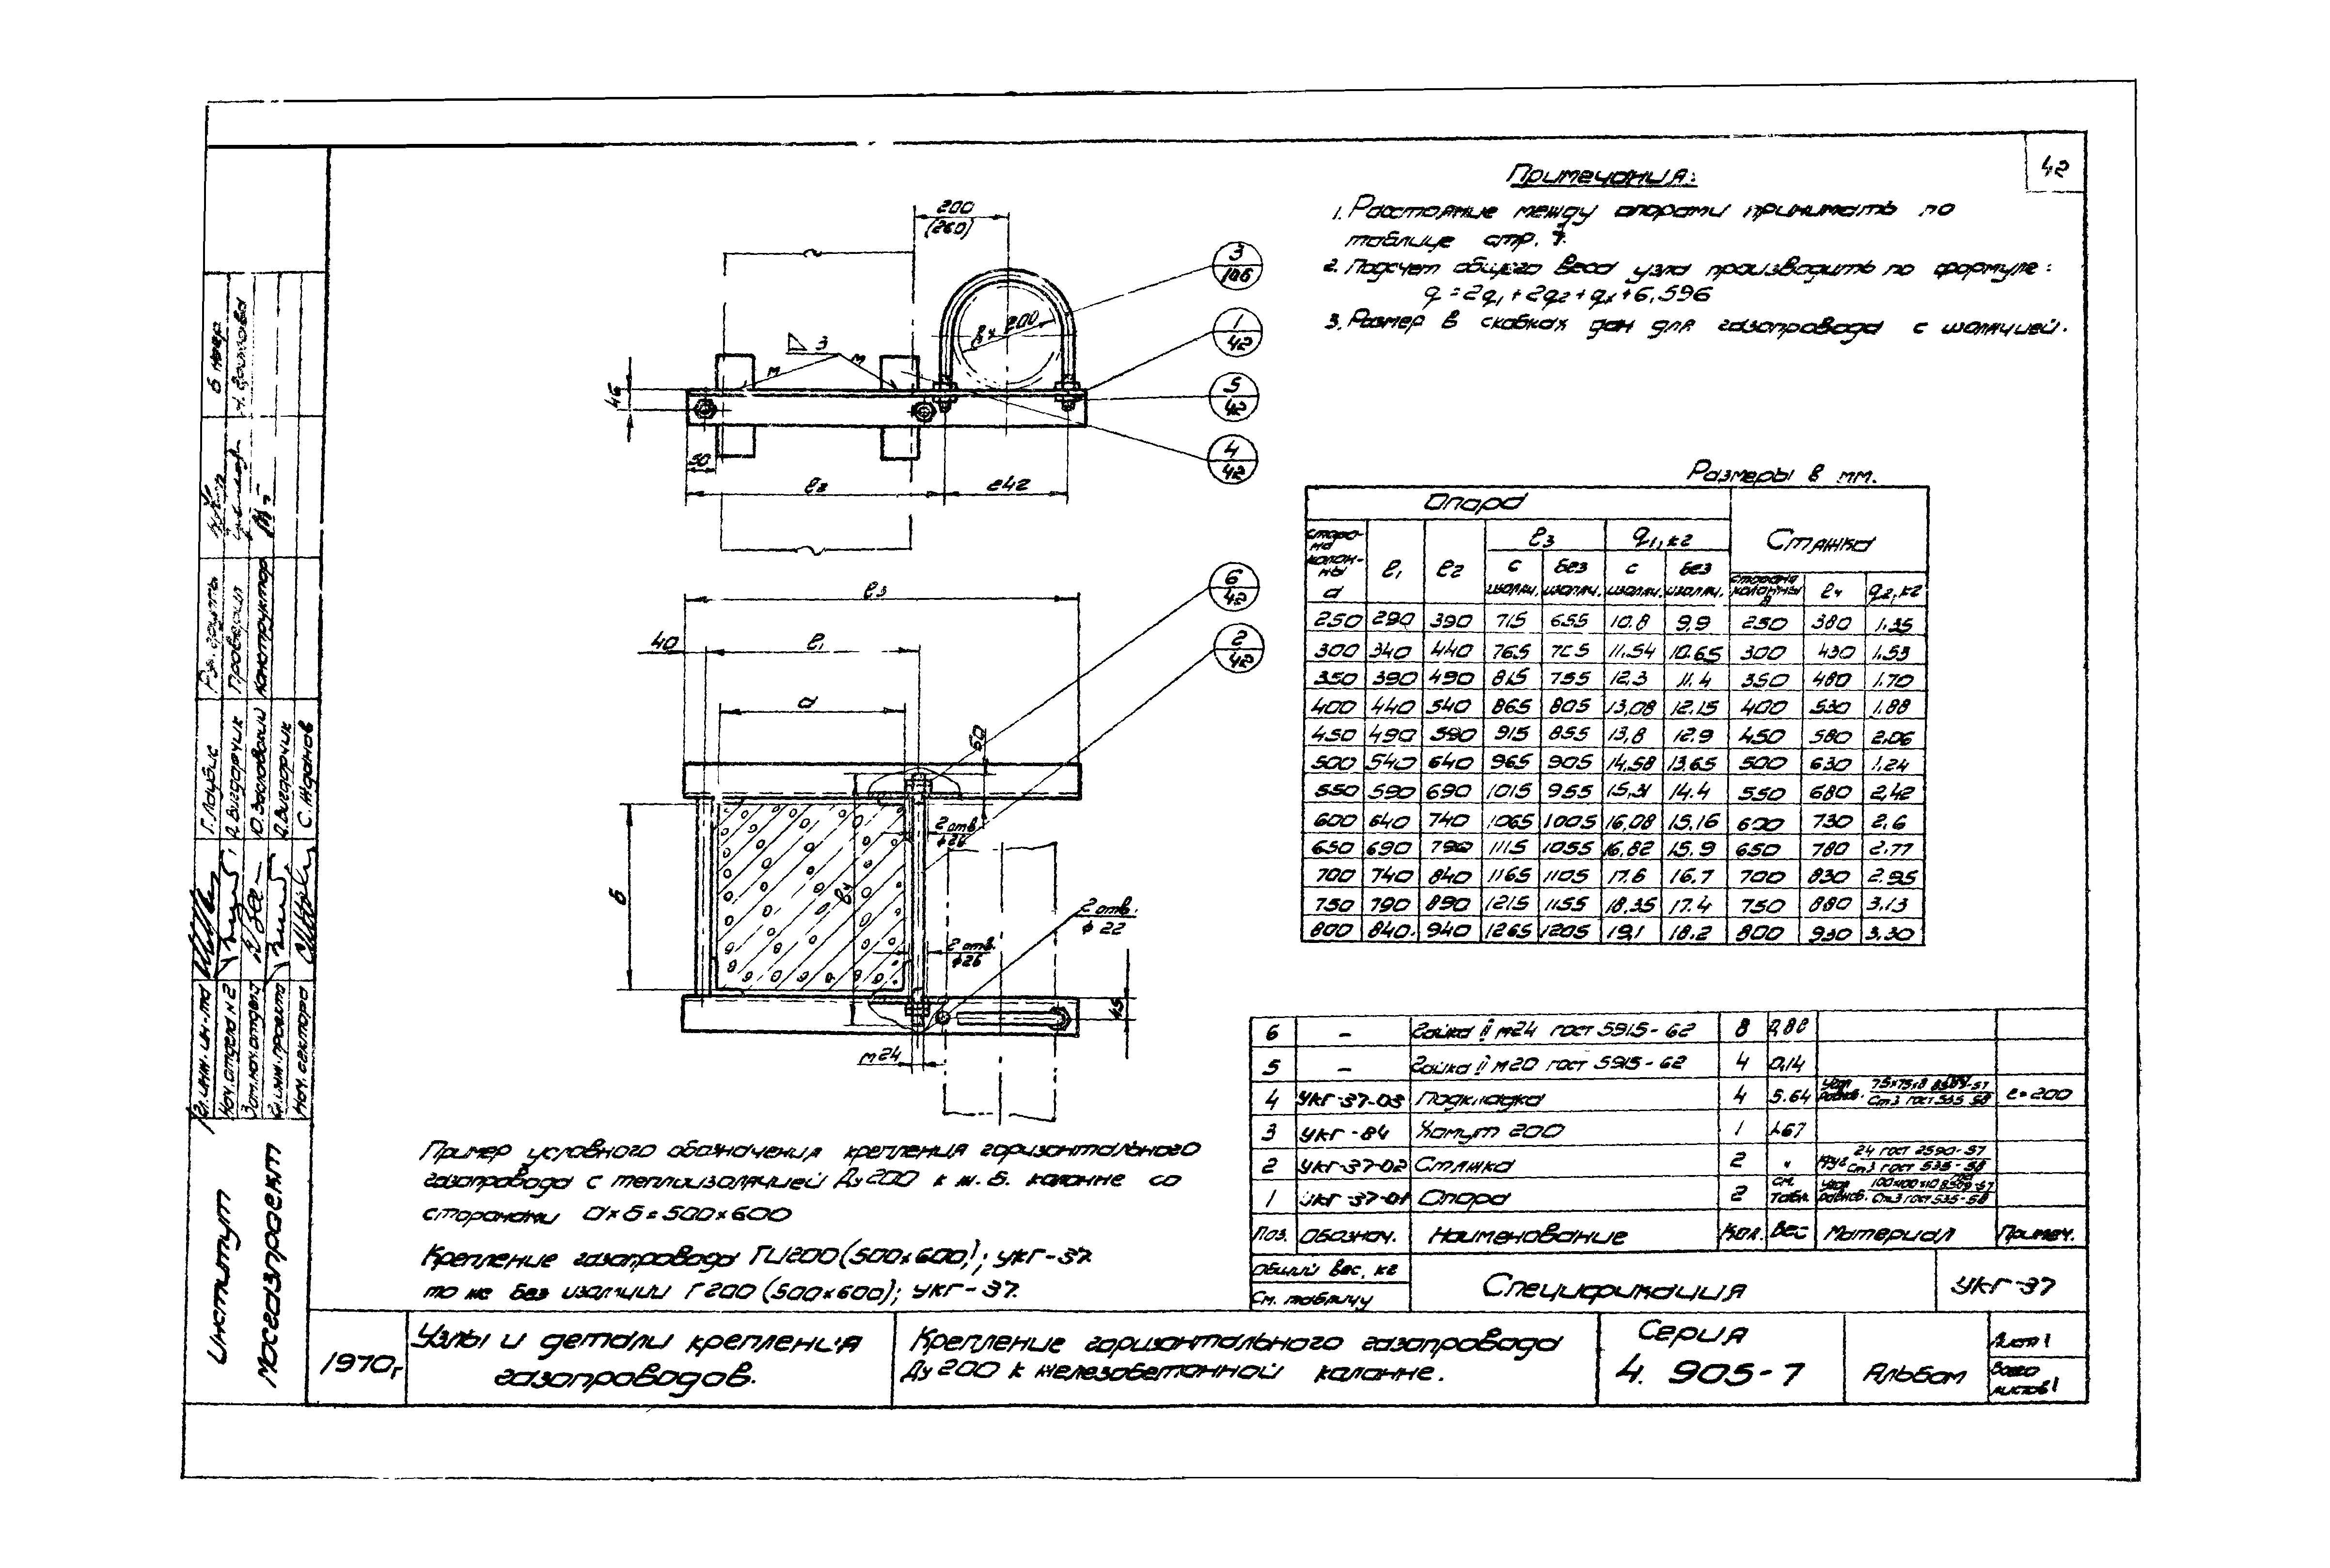 42
Примечания:
1. Расстояние между опорами принимать по
таблице стр. 7.
2. Подсчет общего веса узла производить по формуле:
q = 2q₁ + 2q₂ + qх + 6,596
3. Размер в скобках дан для газопровода с изоляцией.
200
(260)
3/106
1/42
5/42
4/42
Ду 200
3
м
м
46
50
ℓ2
242
6/42
2/42
ℓ3
40
ℓ1
а
60
2 отв.
ф26
б
ℓ4
2 отв.
ф22
2 отв.
ф26
45
м24
Размеры в мм.
Опора
Стяжка
сторона колонны а | ℓ1 | ℓ2 | ℓ3 с изоляц. | ℓ3 без изоляц. | q1, кг с изоляц. | q1, кг без изоляц. | сторона колонны в | ℓ4 | q2, кг
250 290 390 715 655 10.8 9,9 250 380 1.35
300 340 440 765 705 11.54 10.65 300 430 1.53
350 390 490 815 755 12,3 11.4 350 480 1.70
400 440 540 865 805 13,08 12.15 400 530 1.88
450 490 590 915 855 13,8 12.9 450 580 2.06
500 540 640 965 905 14,58 13.65 500 630 1,24
550 590 690 1015 955 15,31 14.4 550 680 2,42
600 640 740 1065 1005 16,08 15,16 600 730 2,6
650 690 790 1115 1055 16,82 15.9 650 780 2.77
700 740 840 1165 1105 17.6 16,7 700 830 2.95
750 790 890 1215 1155 18,35 17.4 750 880 3,13
800 840 940 1265 1205 19,1 18.2 800 930 3.30
6 – Гайка II м24 гост 5915-62 8 0,88
5 – Гайка II м20 гост 5915-62 4 0,14
4 УКГ-37-03 Подкладка 4 5.64 Угол равноб. 75х75х8 гост 8509-57 / Ст3 гост 535-58 ℓ=200
3 УКГ-84 Хомут 200 1 1.67
2 УКГ-37-02 Стяжка 2 " Круг 24 гост 2590-57 / Ст3 гост 535-58
1 УКГ-37-01 Опора 2 см. табл. Угол равноб. 100х100х10 гост 8509-57 / Ст3 гост 535-58
Поз. Обознач. Наименование Кол. Вес Материал Примеч.
Общий вес, кг
См. таблицу
Спецификация
УКГ-37
Пример условного обозначения крепления горизонтального
газопровода с теплоизоляцией Ду 200 к ж.б. колонне со
сторонами а×б=500×600
Крепление газопровода ГИ200 (500×600); УКГ-37.
то же без изоляции Г200 (500×600); УКГ-37.
1970г.
Узлы и детали крепления
газопроводов.
Крепление горизонтального газопровода
Ду 200 к железобетонной колонне.
Серия
4. 905-7
Альбом
Лист 1
Всего
листов 1
Институт
Мосгазпроект
Гл. инж. ин-та
Нач. отдела №2
Зам. нач. отдела
Гл. инж. проекта
Нач. сектора
Г. Лаубис
А. Вигдорчик
А. Вигдорчик
С. Жданов
Рук. группы
Проверил
Конструктор